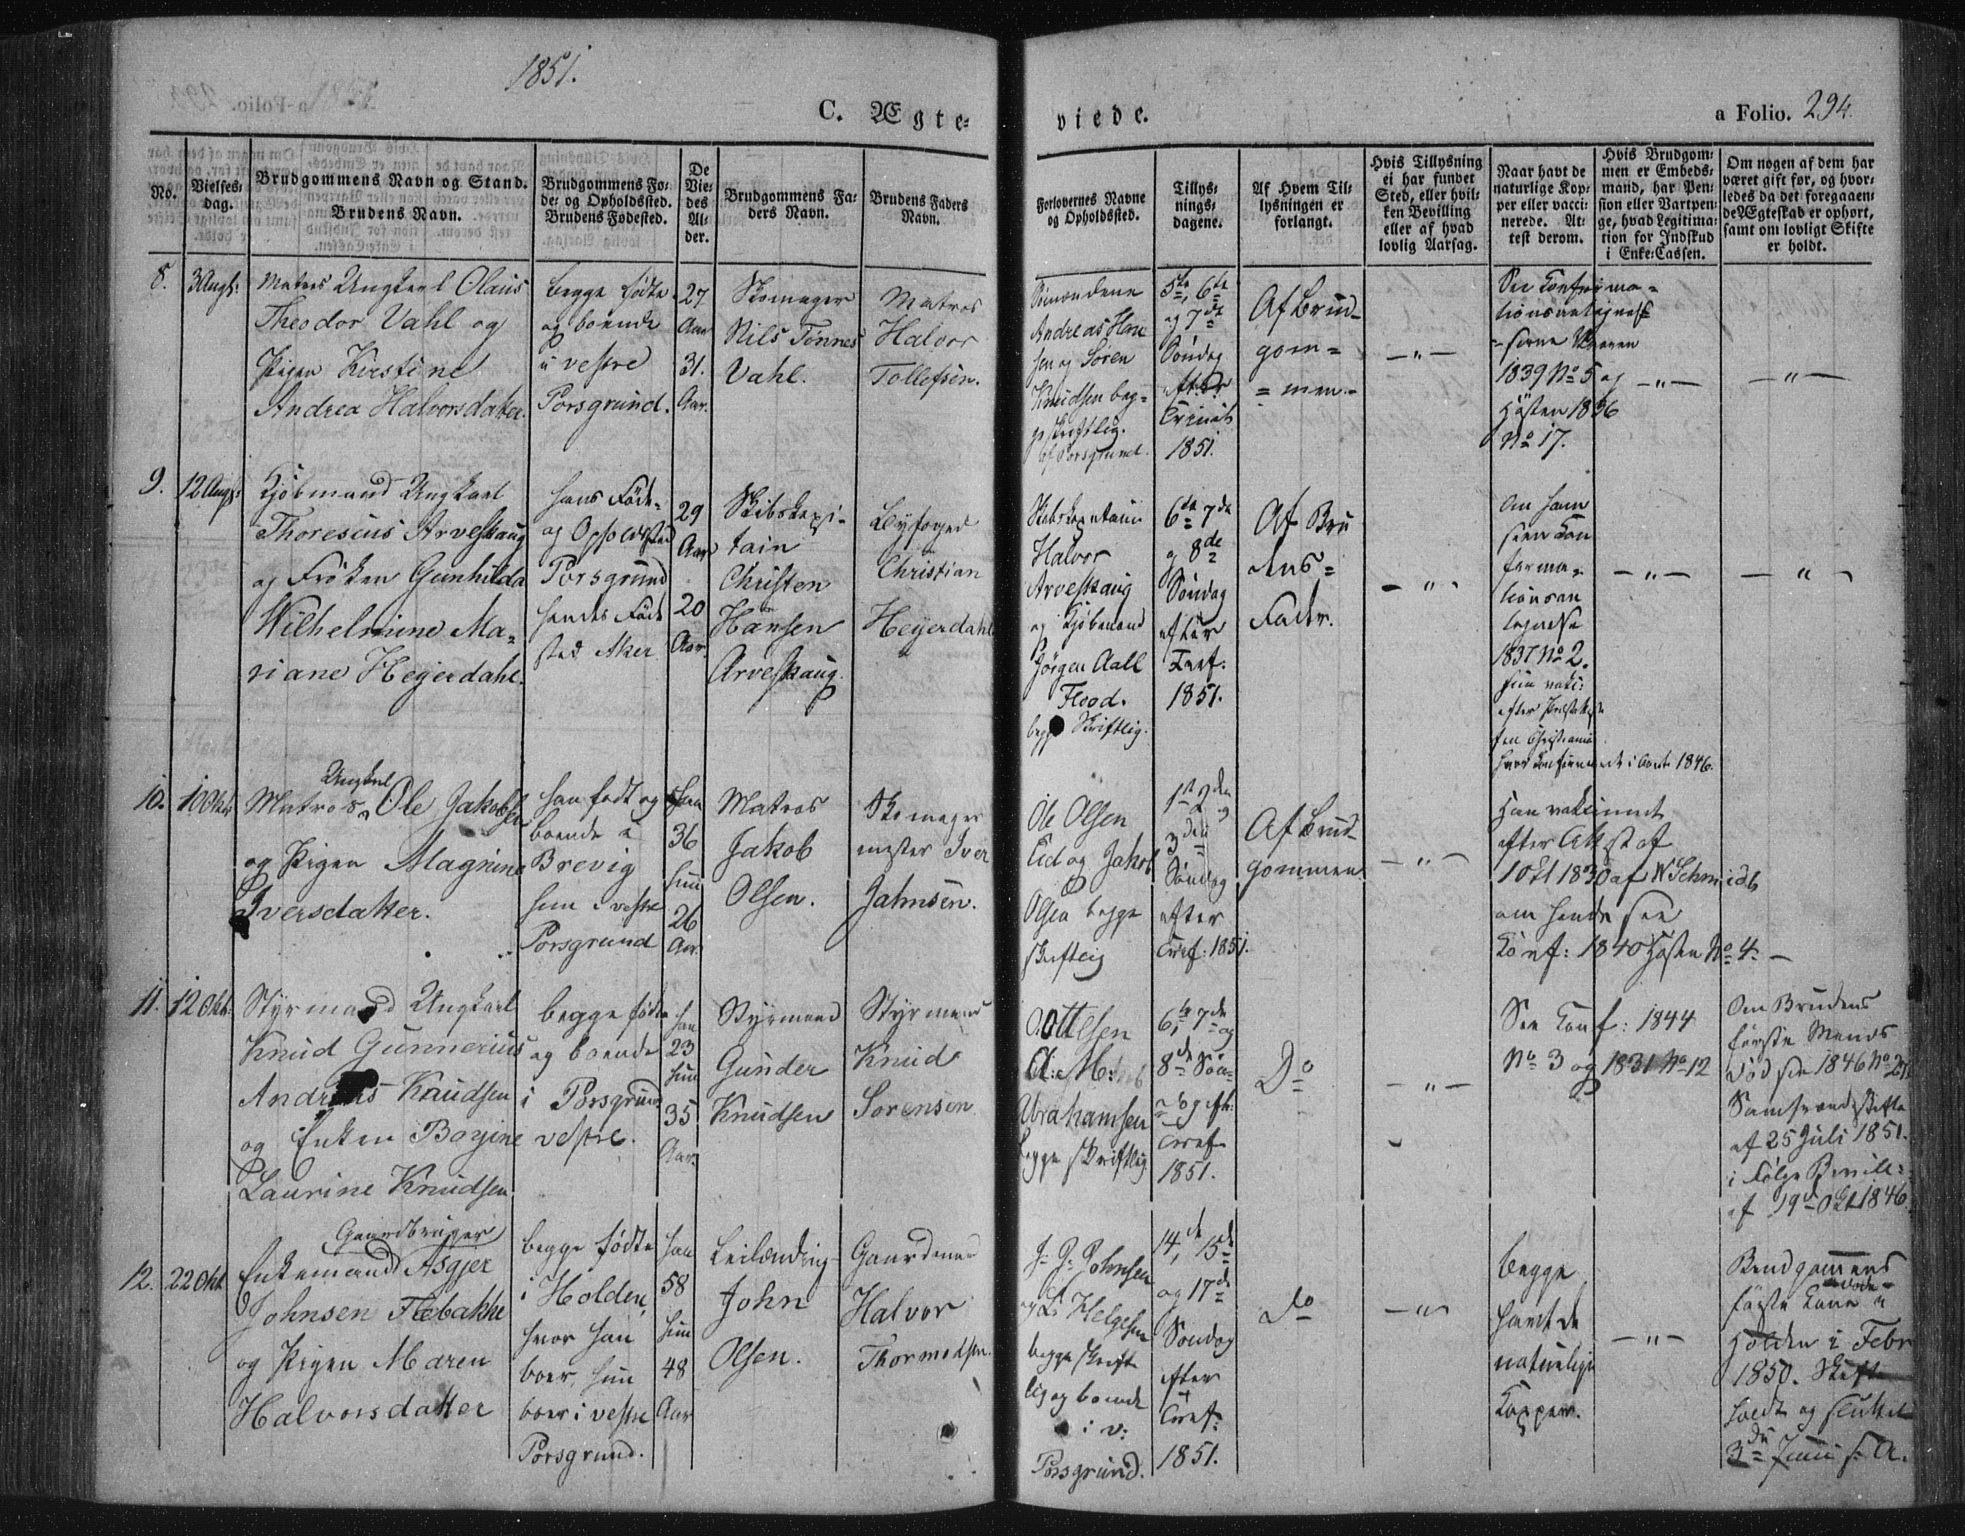 1851.
C. Ægte-
viede.
a Folio. 294.
No.
Vielses-
dag.
Brudgommens Navn og Stand.
Brudens Navn.
Brudgommens Fø-
de- og Opholdssted.
Brudens Fødested.
De
Vie-
des
Al-
der.
Brudgommens Fa-
ders Navn.
Brudens Faders
Navn.
Forlovernes Navne
og Opholdssted.
Tillys-
nings-
dagene.
Af Hvem Til-
lysningen er
forlangt.
Hvis Tillysning
ei har fundet
Sted, eller hvil-
ken Bevilling
eller af hvad
lovlig Aarsag.
Naar havt de
naturlige Kop-
per eller vacci-
nerede. At-
test derom.
Hvis Brudgom-
men er Embeds-
mand, har Pen-
sion eller Vartpen-
ge, hvad Legitima-
tion for Indskud
i Enke-Cassen.
Om nogen af dem har
været gift før, og hvor-
ledes da det foregaaen-
de Ægteskab er ophørt,
samt om lovligt Skifte
er holdt.
8.
3 Augst:
Matros Ungkarl Olaus
Theodor Vahl og
Pigen Kirstine
Andrea Halvorsdatter.
begge fødte
og boende
i vestre
Porsgrund.
27
Aar
31.
Aar.
Skomager
Nils Tønnes
Vahl.
Matros
Halvor
Tollefsen.
Sømændene
Andreas Han
sen og Søren
Knudsen beg-
ge skriftlig.
af Porsgrund.
5te, 6te
og 7de
Søndag
efter
Trinit
1851.
Af Brud-
gom-
men.
-"-
See Confirma-
tionsantegnels
serne Vaaren
1839 No 5 og
Høsten 1836
No 17.
-"-
-"-
9.
12 Augst:
Kjøbmand Ungkarl
Thoresius Arveskaug
og Frøken Gunhilda
Wilhelmine Ma-
riane Hejerdahl.
hans Føde-
og Opholdssted
Porsgrund
hendes Føde
sted Aker
29
Aar
20
Aar.
Skibskapi-
tain
Christen
Hansen
Arveskaug.
Byfoged
Christian
Heyerdahl
Skibskaptain
Halvor
Arveskaug
og Kjøbmand
Jørgen Aall
Flood.
begge Skriftlig.
6te 7de
og 8de
Søndag
efter
Tref:
1851.
Af Bru
dens
Fader.
-"-
om ham
seen Con
firma-
tionsan
tegnelse
1837 No 2.
hun vaki:
efter
fra Christiania
hvor Confirmeret i Aaret 1846.
-"-
-"-
10.
10 Okt.
Ungkarl
Matros Ole Jakobsen
og Pigen Magnine
Iversdatter.
han født og
boende i
Brevig
hun i vestre
Porsgrund
Han
36
hun
26
Aar.
Matros
Jakob
Olsen.
Skomager
mester Iver
Jahnsen.
Ole Olsen
Eid og Jakob
Olsen begge
skriftlig
1ste 2den og
3den
Søndag
efter
Tref: 1851.
Af Brud-
gommen
-"-
Han vakcineret
efter Attest af
10 Okt 1830 af N Schmidt
om hende see
Conf: 1840 Høsten No 4. -
11.
12 Okt.
Styrmand Ungkarl
Knud Gunnerius
Andreas Knudsen
og Enken Borgine
Laurine Knudsen.
begge fødte
og boende
i Porsgrund
vestre.
han
23
hun
35
Aar.
Styrmand
Gunder
Knudsen
Styrmand
Knud
Sørensen
O. Ottesen
Abrahamsen
begge skriftlig
6te, 7de og
8de Søn-
dag efter
Tref
1851.
Do
-"-
See Conf: 1844
No 3 og 1831 No 12
Om Brudens
første Mands
Død see 1846 No 27.
Samfrændeskifte
af 25 Juli 1851.
i Følge Bevill-
af 19de Okt 1846.
12.
22 Okt.
Gaardbruger
Enkemand Asgjer
Johnsen Flebakke
og Pigen Maren
Halvorsdatter
begge fødte
i Holden,
hvor han
boer, hun
boer i vestre
Porsgrund.
han
58
hun
48
Aar
Leilænding
John
Olsen.
Gaardmand
Halvor
Thormodsen.
J. P. Johnsen
og L. Helgesen
begge skrift
lig og boende
i v:
Porsgrund.
14de, 15de
og 17de
Søndag
efter
Tref:
1851.
Do
-"-
begge
havt de
naturlige
Kopper.
-"-
Brudgommens
første Kone døde i
Holden i Febr
1850. Skifte
holdt og sluttet
3die Juni s. A.